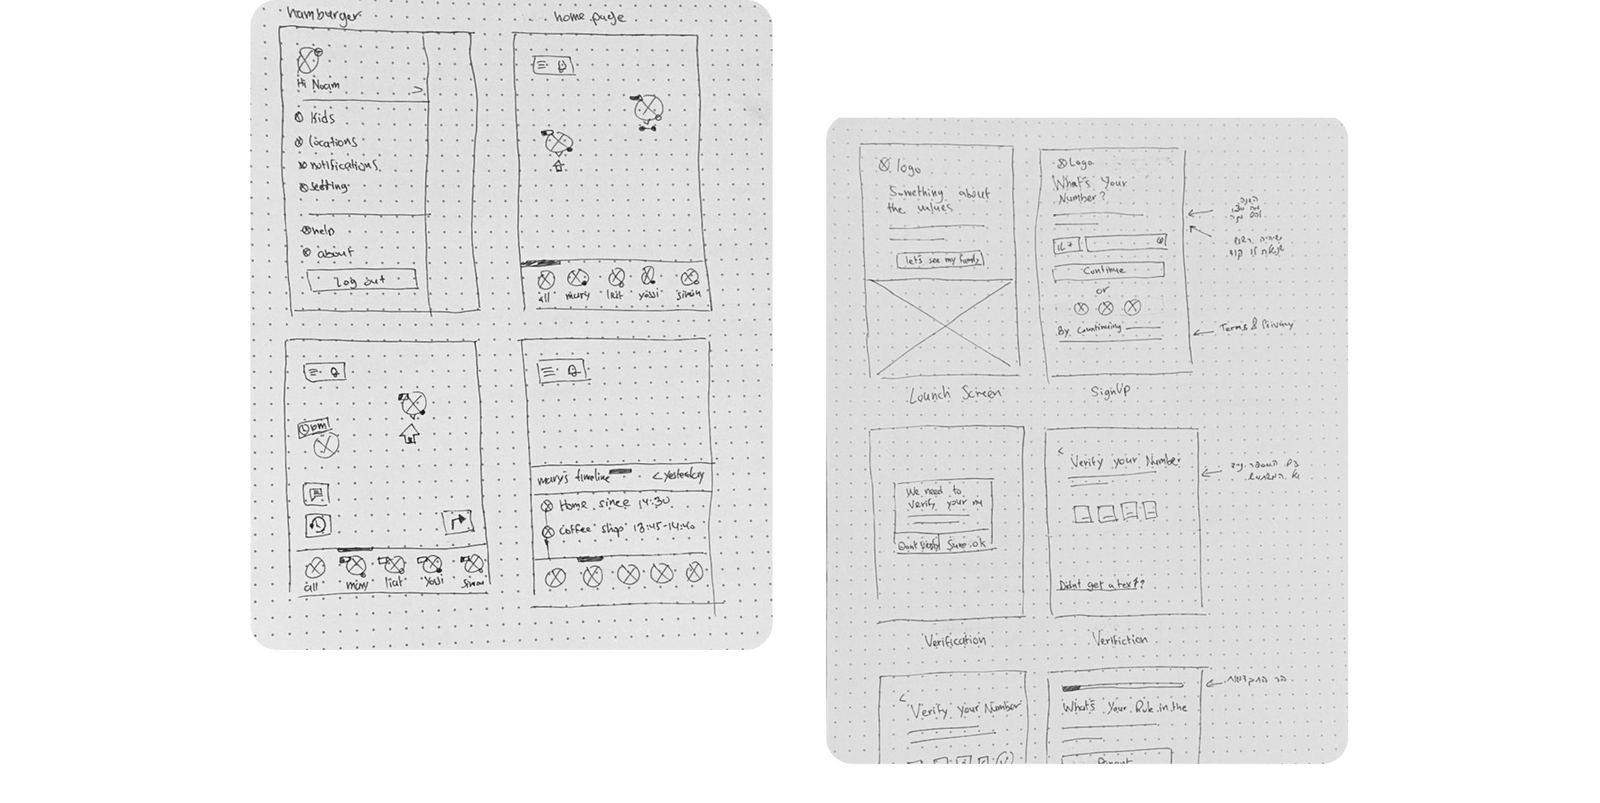 hamburger
Hi Noam
>
Kids
locations
notifications
setting
help
about
Log out
home page
all
mary
liat
yossi
simon
all
mary
liat
Yossi
simon
mary's timeline
< yesterday
Home since 14:30
Coffee shop 13:45-14:40
logo
Something about
the values
let's see my family
Lounch Screen
Logo
What's Your
Number?
Continue
or
By Countinuing
Terms & Privacy
SignUp
We need to
Verify your
Sure.ok
Verification
<
Verify your Number
Didnt get a text?
Verifiction
<
Verify your Number
What's Your Role in the
Parent